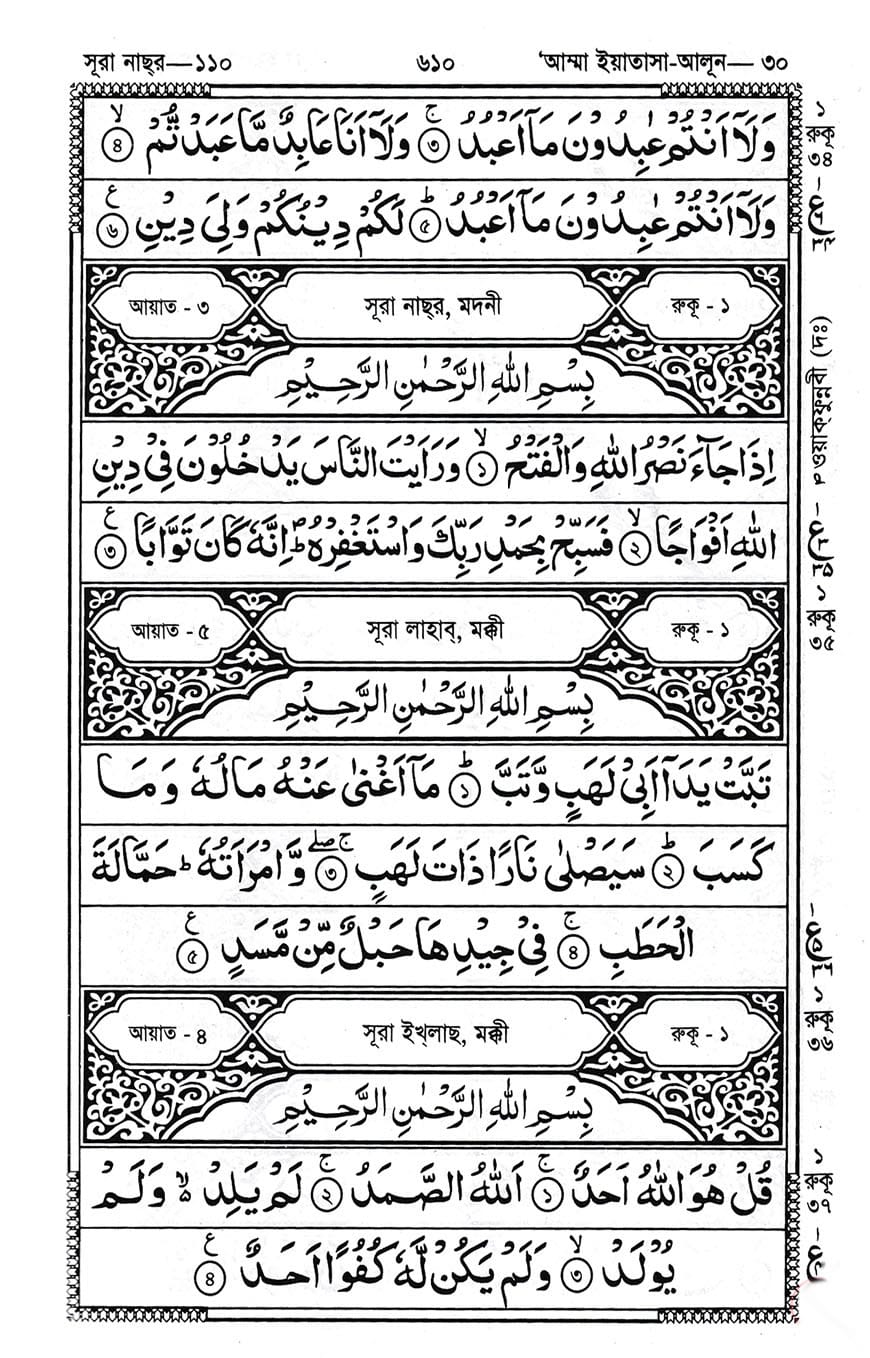 সূরা নাছ্‌র—১১০ ৬১০ 'আম্মা ইয়াতাসা-আলূন— ৩০
وَلَآ اَنْتُمْ عٰبِدُوْنَ مَآ اَعْبُدُ ۚ﴿৩﴾ وَلَآ اَنَا عَابِدٌ مَّا عَبَدْتُّمْ ۙ﴿৪﴾
وَلَآ اَنْتُمْ عٰبِدُوْنَ مَآ اَعْبُدُ ؕ﴿৫﴾ لَكُمْ دِيْنُكُمْ وَلِىَ دِيْنِ ﴿৬﴾ ع
আয়াত - ৩ সূরা নাছ্‌র, মদনী রুকূ - ১
بِسْمِ اللّٰهِ الرَّحْمٰنِ الرَّحِيْمِ
اِذَا جَآءَ نَصْرُ اللّٰهِ وَالْفَتْحُ ۙ﴿১﴾ وَرَاَيْتَ النَّاسَ يَدْخُلُوْنَ فِىْ دِيْنِ
اللّٰهِ اَفْوَاجًا ۙ﴿২﴾ فَسَبِّحْ بِحَمْدِ رَبِّكَ وَاسْتَغْفِرْهُ ؕ اِنَّهٗ كَانَ تَوَّابًا ﴿৩﴾ ع
আয়াত - ৫ সূরা লাহাব্, মক্কী রুকূ - ১
بِسْمِ اللّٰهِ الرَّحْمٰنِ الرَّحِيْمِ
تَبَّتْ يَدَآ اَبِىْ لَهَبٍ وَّتَبَّ ؕ﴿১﴾ مَآ اَغْنٰى عَنْهُ مَالُهٗ وَمَا
كَسَبَ ؕ﴿২﴾ سَيَصْلٰى نَارًا ذَاتَ لَهَبٍ ۚۖ﴿৩﴾ وَّامْرَاَتُهٗ ؕ حَمَّالَةَ
الْحَطَبِ ۚ﴿৪﴾ فِىْ جِيْدِهَا حَبْلٌ مِّنْ مَّسَدٍ ﴿৫﴾ ع
আয়াত - ৪ সূরা ইখ্‌লাছ, মক্কী রুকূ - ১
بِسْمِ اللّٰهِ الرَّحْمٰنِ الرَّحِيْمِ
قُلْ هُوَ اللّٰهُ اَحَدٌ ۚ﴿১﴾ اَللّٰهُ الصَّمَدُ ۚ﴿২﴾ لَمْ يَلِدْ ۙ۬ وَلَمْ
يُوْلَدْ ۙ﴿৩﴾ وَلَمْ يَكُنْ لَّهٗ كُفُوًا اَحَدٌ ﴿৪﴾ ع
১ রুকূ ৩৪
ওয়াক্‌ফুন্নবী (দঃ)
১ রুকূ ৩৫
১ রুকূ ৩৬
১ রুকূ ৩৭